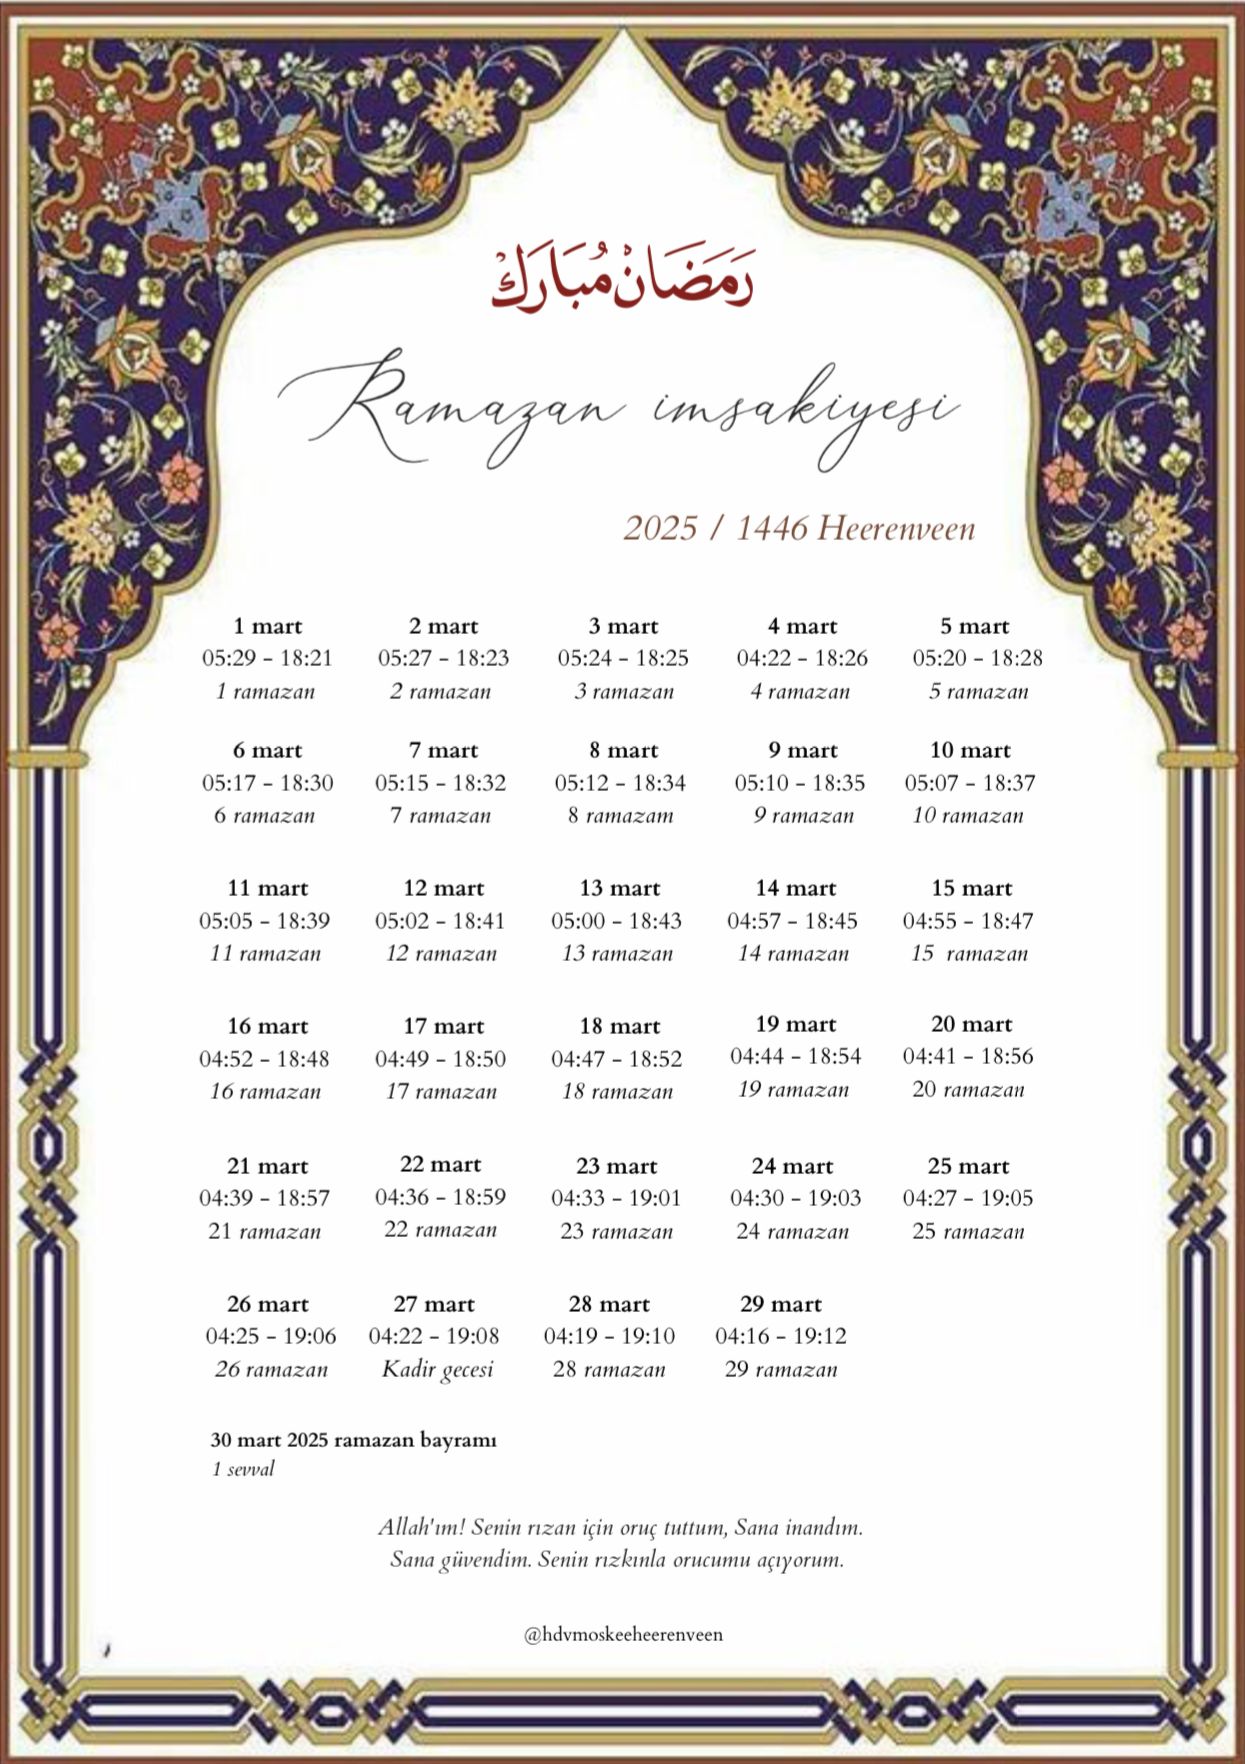 رَمَضَانْ مُبَارَكْ
Ramazan imsakiyesi
2025 / 1446 Heerenveen
1 mart 2 mart 3 mart 4 mart 5 mart
05:29 - 18:21 05:27 - 18:23 05:24 - 18:25 04:22 - 18:26 05:20 - 18:28
1 ramazan 2 ramazan 3 ramazan 4 ramazan 5 ramazan
6 mart 7 mart 8 mart 9 mart 10 mart
05:17 - 18:30 05:15 - 18:32 05:12 - 18:34 05:10 - 18:35 05:07 - 18:37
6 ramazan 7 ramazan 8 ramazam 9 ramazan 10 ramazan
11 mart 12 mart 13 mart 14 mart 15 mart
05:05 - 18:39 05:02 - 18:41 05:00 - 18:43 04:57 - 18:45 04:55 - 18:47
11 ramazan 12 ramazan 13 ramazan 14 ramazan 15 ramazan
16 mart 17 mart 18 mart 19 mart 20 mart
04:52 - 18:48 04:49 - 18:50 04:47 - 18:52 04:44 - 18:54 04:41 - 18:56
16 ramazan 17 ramazan 18 ramazan 19 ramazan 20 ramazan
21 mart 22 mart 23 mart 24 mart 25 mart
04:39 - 18:57 04:36 - 18:59 04:33 - 19:01 04:30 - 19:03 04:27 - 19:05
21 ramazan 22 ramazan 23 ramazan 24 ramazan 25 ramazan
26 mart 27 mart 28 mart 29 mart
04:25 - 19:06 04:22 - 19:08 04:19 - 19:10 04:16 - 19:12
26 ramazan Kadir gecesi 28 ramazan 29 ramazan
30 mart 2025 ramazan bayramı
1 sevval
Allah'ım! Senin rızan için oruç tuttum, Sana inandım.
Sana güvendim. Senin rızkınla orucumu açıyorum.
@hdvmoskeeheerenveen